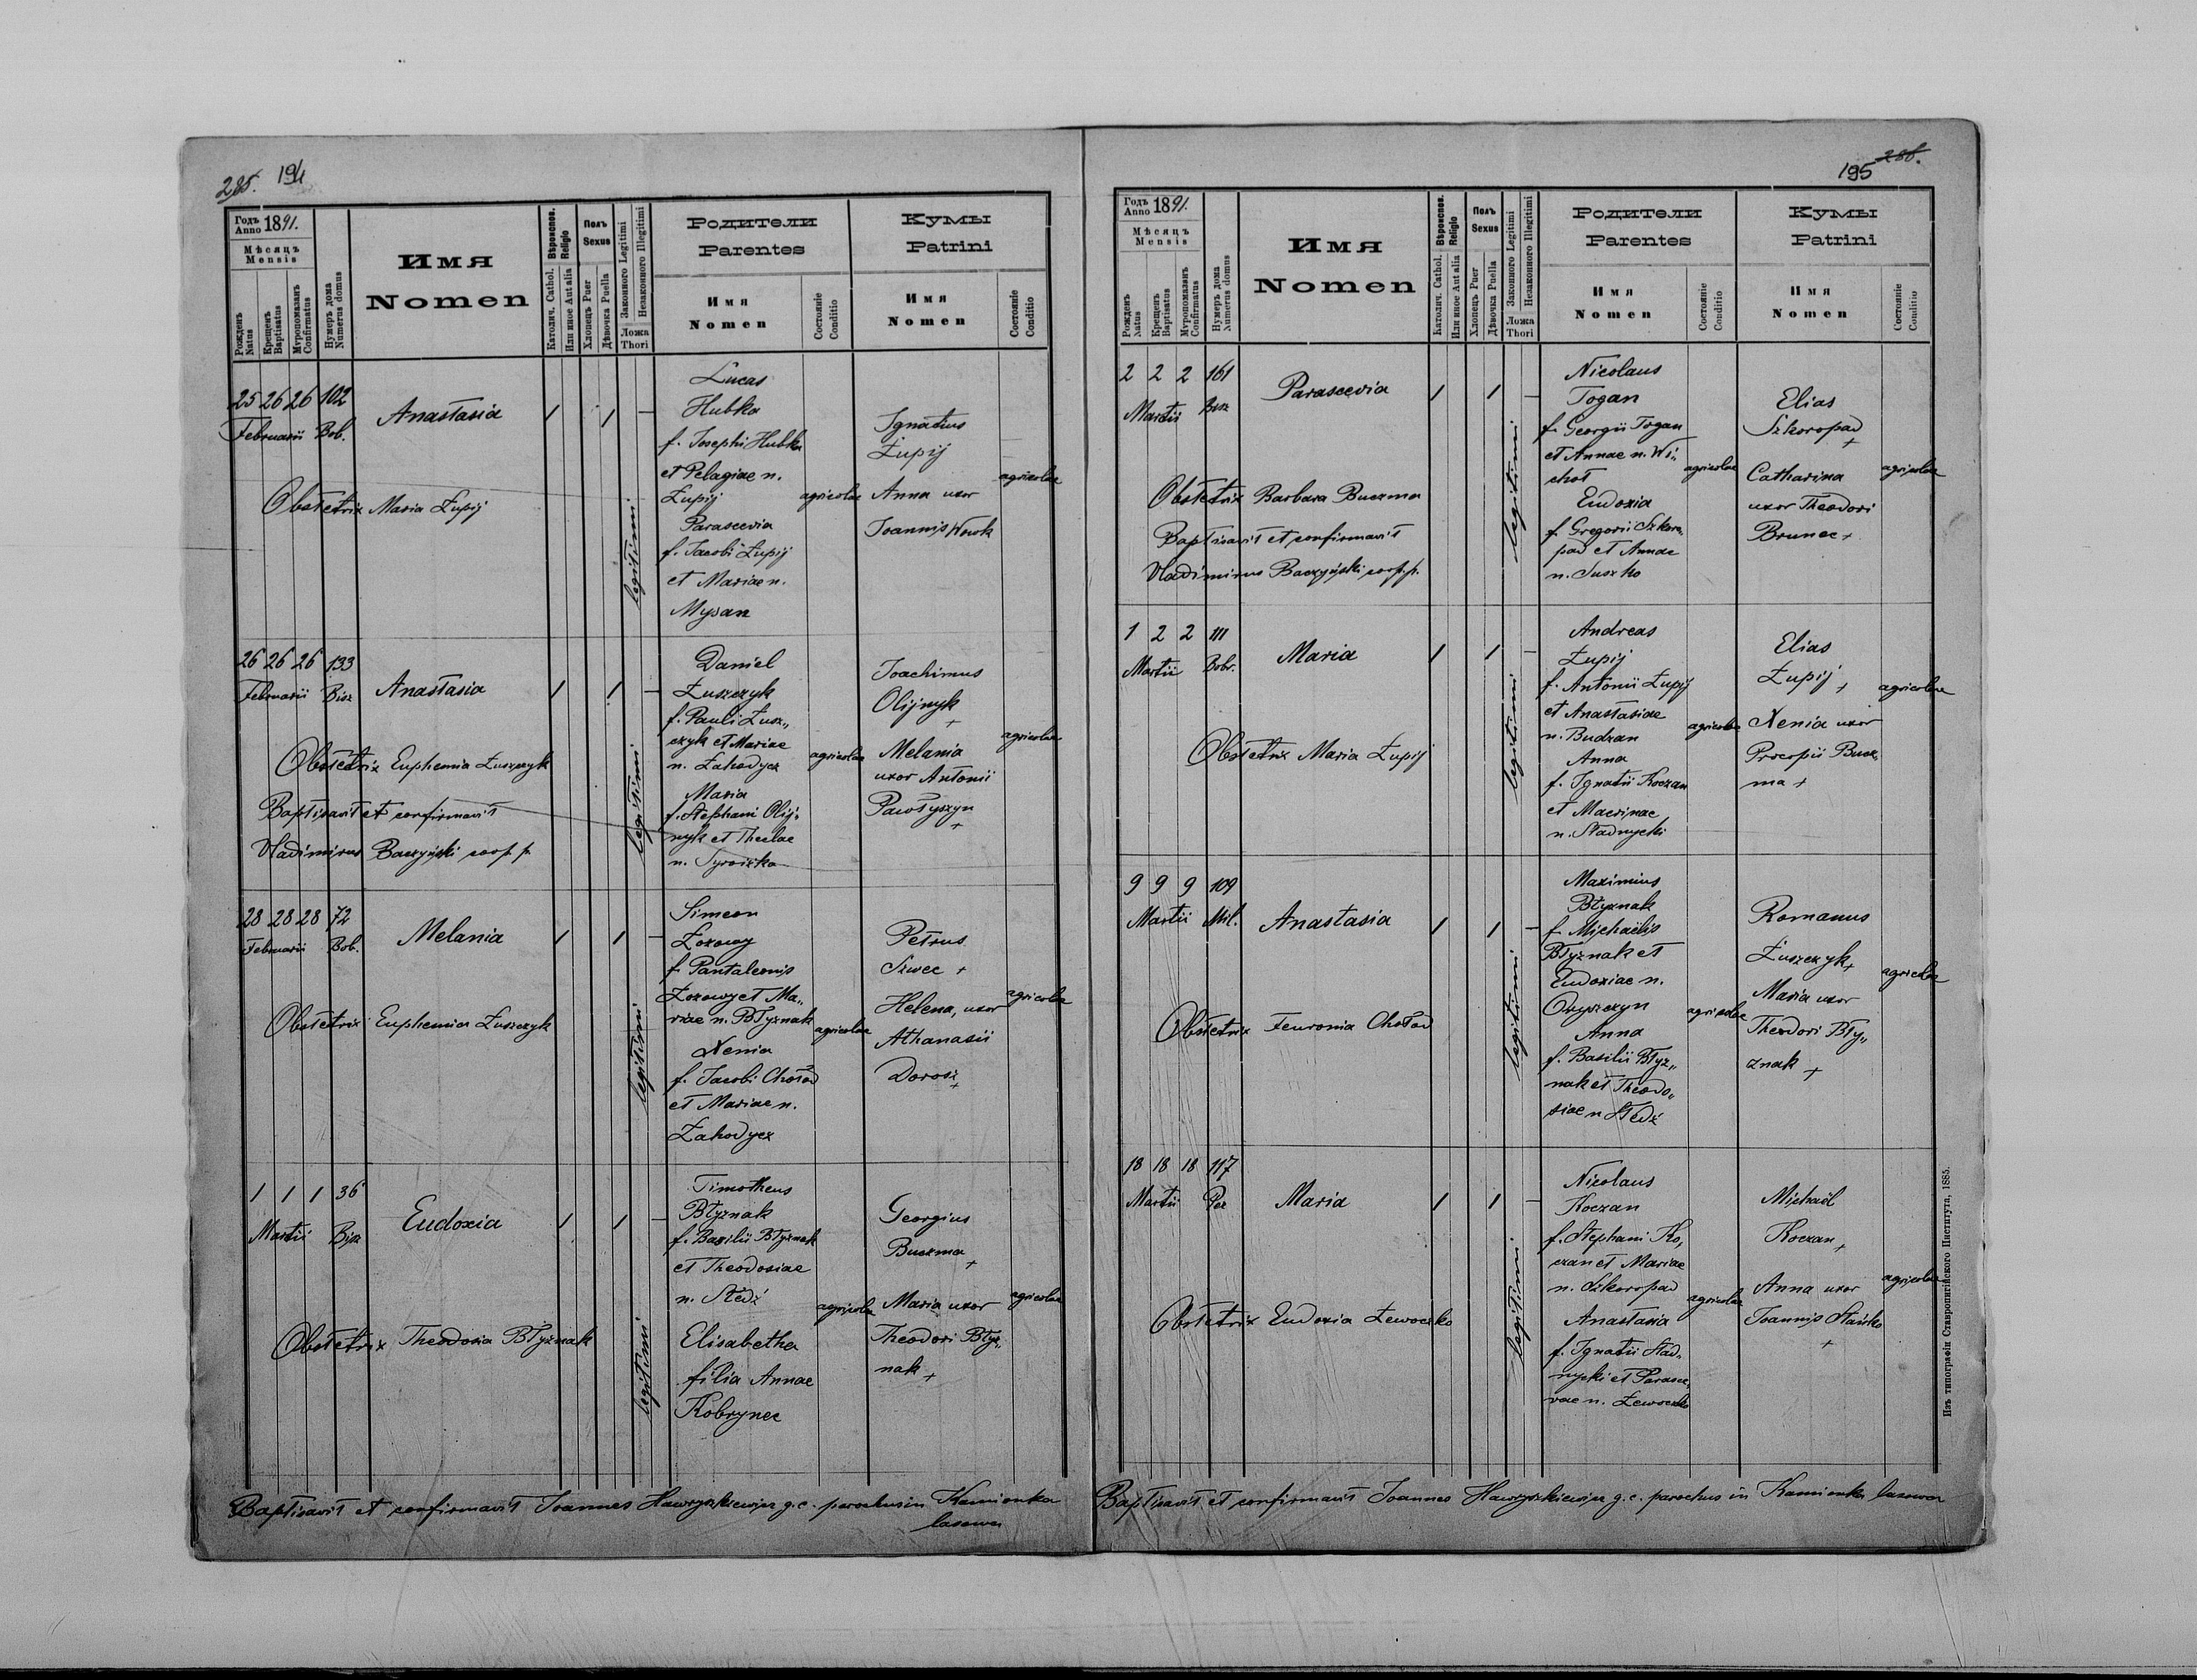 285. 194
Годъ Anno 1891.
Мѣсяцъ
Mensis
Рожденъ Natus
Крещенъ Baptisatus
Мѵропомазанъ Confirmatus
Нумеръ дома Numerus domus
Имя
Nomen
Вѣроиспов. Religio
Католич. Cathol.
Или иное Aut alia
Полъ
Sexus
Хлопецъ Puer
Дѣвочка Puella
Законного Legitimi
Незаконного Illegitimi
Ложа
Thori
Родители
Parentes
Имя
Nomen
Состояніе Conditio
Кумы
Patrini
Имя
Nomen
Состояніе Conditio
25 26 26 102
Februarii Bob.
Anastasia
Obstetrix Maria Łupij
legitimi
Lucas
Hubka
f. Josephi Hubka
et Pelagiae n.
Łupij
Parascevia
f. Jacobi Łupij
et Mariae n.
Mysan
agricolae
Ignatius
Łupij
Anna uxor
Joannis Wowk
agricolae
26 26 26 133
Februarii Bisz
Anastasia
Obstetrix Euphemia Łuszczyk
Baptisavit et confirmavit
Vladimirus Baczyński coop. p.
legitimi
Daniel
Łuszczyk
f. Pauli Łusz„
czyk et Mariae
n. Łahodycz
Maria
f. Stephani Olij„
nyk et Theclae
n. Syroiżka
agricolae
Joachimus
Olijnyk
+
Melania
uxor Antonii
Pawłyszyn
+
agricolae
28 28 28 72
Februarii Bob.
Melania
Obstetrix Euphemia Łuszczyk
legitimi
Simeon
Łozowy
f. Pantaleonis
Łozowy et Ma„
riae n. Błyznak
Xenia
f. Jacobi Chołod
et Mariae n.
Łahodycz
agricolae
Petrus
Szwec +
Helena, uxor
Athanasii
Dorosz
+
agricolae
1 1 1 36
Martii Bisz
Eudoxia
Obstetrix Theodosia Błyznak
legitimi
Timotheus
Błyznak
f. Basilii Błyznak
et Theodosiae
n. Stedź
Elisabetha
filia Annae
Kobrynec
agricolae
Georgius
Buczma
+
Maria uxor
Theodori Błyz„
nak +
agricolae
Baptisavit et confirmavit Joannes Hawryszkiewicz g. c. parochus in Kamionka
lasowa
195 286.
Годъ Anno 1891.
Мѣсяцъ
Mensis
Рожденъ Natus
Крещенъ Baptisatus
Мѵропомазанъ Confirmatus
Нумеръ дома Numerus domus
Имя
Nomen
Вѣроиспов. Religio
Католич. Cathol.
Или иное Aut alia
Полъ
Sexus
Хлопецъ Puer
Дѣвочка Puella
Законного Legitimi
Незаконного Illegitimi
Ложа
Thori
Родители
Parentes
Имя
Nomen
Состояніе Conditio
Кумы
Patrini
Имя
Nomen
Состояніе Conditio
2 2 2 161
Martii Bisz
Parascevia
Obstetrix Barbara Buczma
Baptisavit et confirmavit
Vladimirus Baczyński coop. p.
legitimi
Nicolaus
Togan
f. Georgii Togan
et Annae n. Wi„
chot
Eudoxia
f. Gregorii Szkoro„
pad et Annae
n. Suszko
agricolae
Elias
Szkoropad
+
Catharina
uxor Theodori
Brunec +
agricolae
1 2 2 111
Martii Bobr.
Maria
Obstetrix Maria Łupij
legitimi
Andreas
Łupij
f. Antonii Łupij
et Anastasiae
n. Budzan
Anna
f. Ignatii Koczan
et Macrinae
n. Stadnycki
agricolae
Elias
Łupij +
Xenia uxor
Procopii Bucz„
ma +
agricolae
9 9 9 109
Martii Mił.
Anastasia
Obstetrix Fewronia Chołod
legitimi
Maximius
Błyznak
f. Michaëlis
Błyznak et
Eudoxiae n.
Onyszczyn
Anna
f. Basilii Błyz„
nak et Theodo„
siae n Stedź
agricolae
Romanus
Łuszczyk +
Maria uxor
Theodori Bły„
znak +
agricolae
18 18 18 117
Martii Per
Maria
Obstetrix Eudoxia Lewoczko
legitimi
Nicolaus
Koczan
f. Stephani Ko„
czan et Mariae
n. Szkoropad
Anastasia
f. Ignatii Stad„
nycki et Parasce„
vae n. Lewoczko
agricolae
Michaël
Koczan +
Anna uxor
Joannis Staśko
+
agricolae
Baptisavit et confirmavit Joannes Hawryszkiewicz g. c. parochus in Kamionka lasowa
Изъ типографіи Ставропигійского Института, 1885.